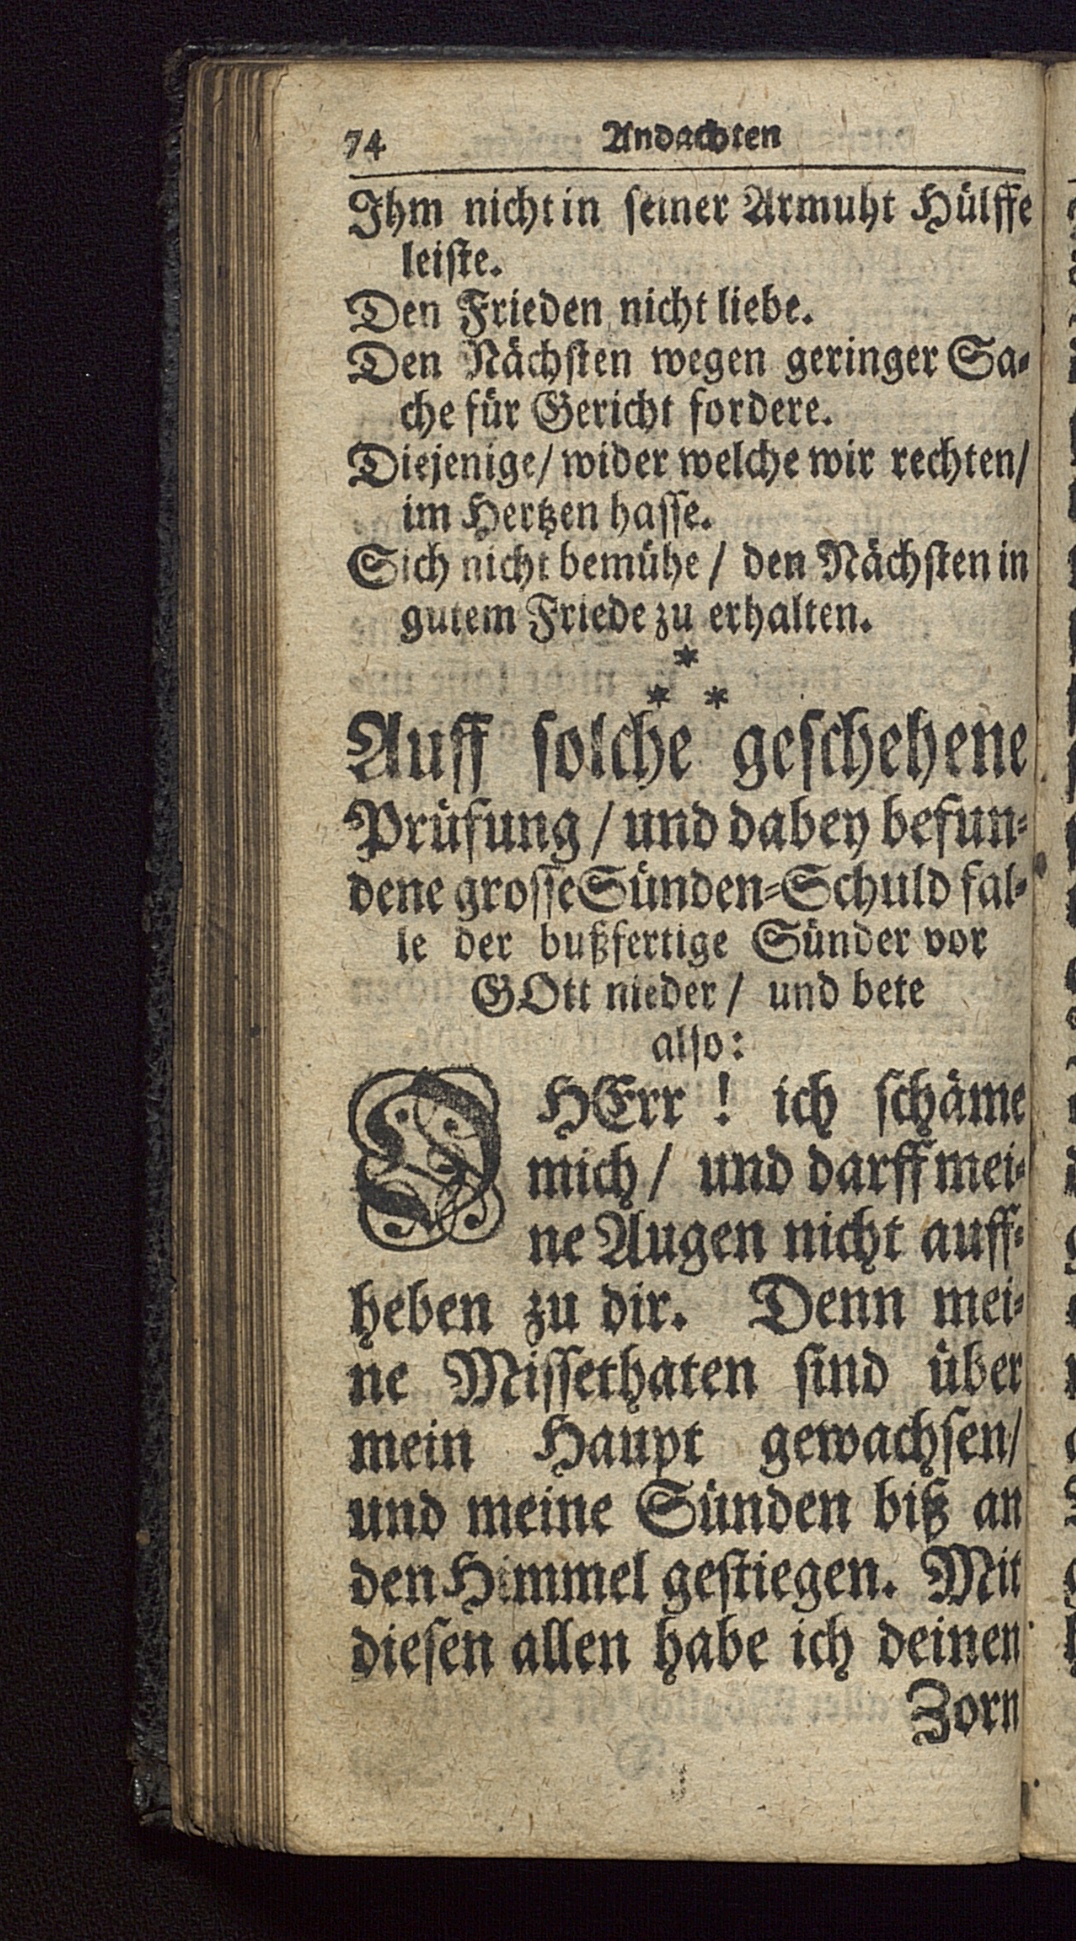 74 Andachten
Ihm nicht in seiner Armuht Hülffe
leiste.
Den Frieden nicht liebe.
Den Nächsten wegen geringer Sa-
che für Gericht fordere.
Diejenige/ wider welche wir rechten/
im Hertzen hasse.
Sich nicht bemühe/ den Nächsten in
gutem Friede zu erhalten.
*
* *
Auff solche geschehene
Prüfung/ und dabey befun-
dene grosse Sünden-Schuld fal-
le der bußfertige Sünder vor
GOtt nieder/ und bete
also:
O HErr! ich schäme
mich/ und darff mei-
ne Augen nicht auff-
heben zu dir. Denn mei-
ne Missethaten sind über
mein Haupt gewachsen/
und meine Sünden biß an
den Himmel gestiegen. Mit
diesen allen habe ich deinen
Zorn